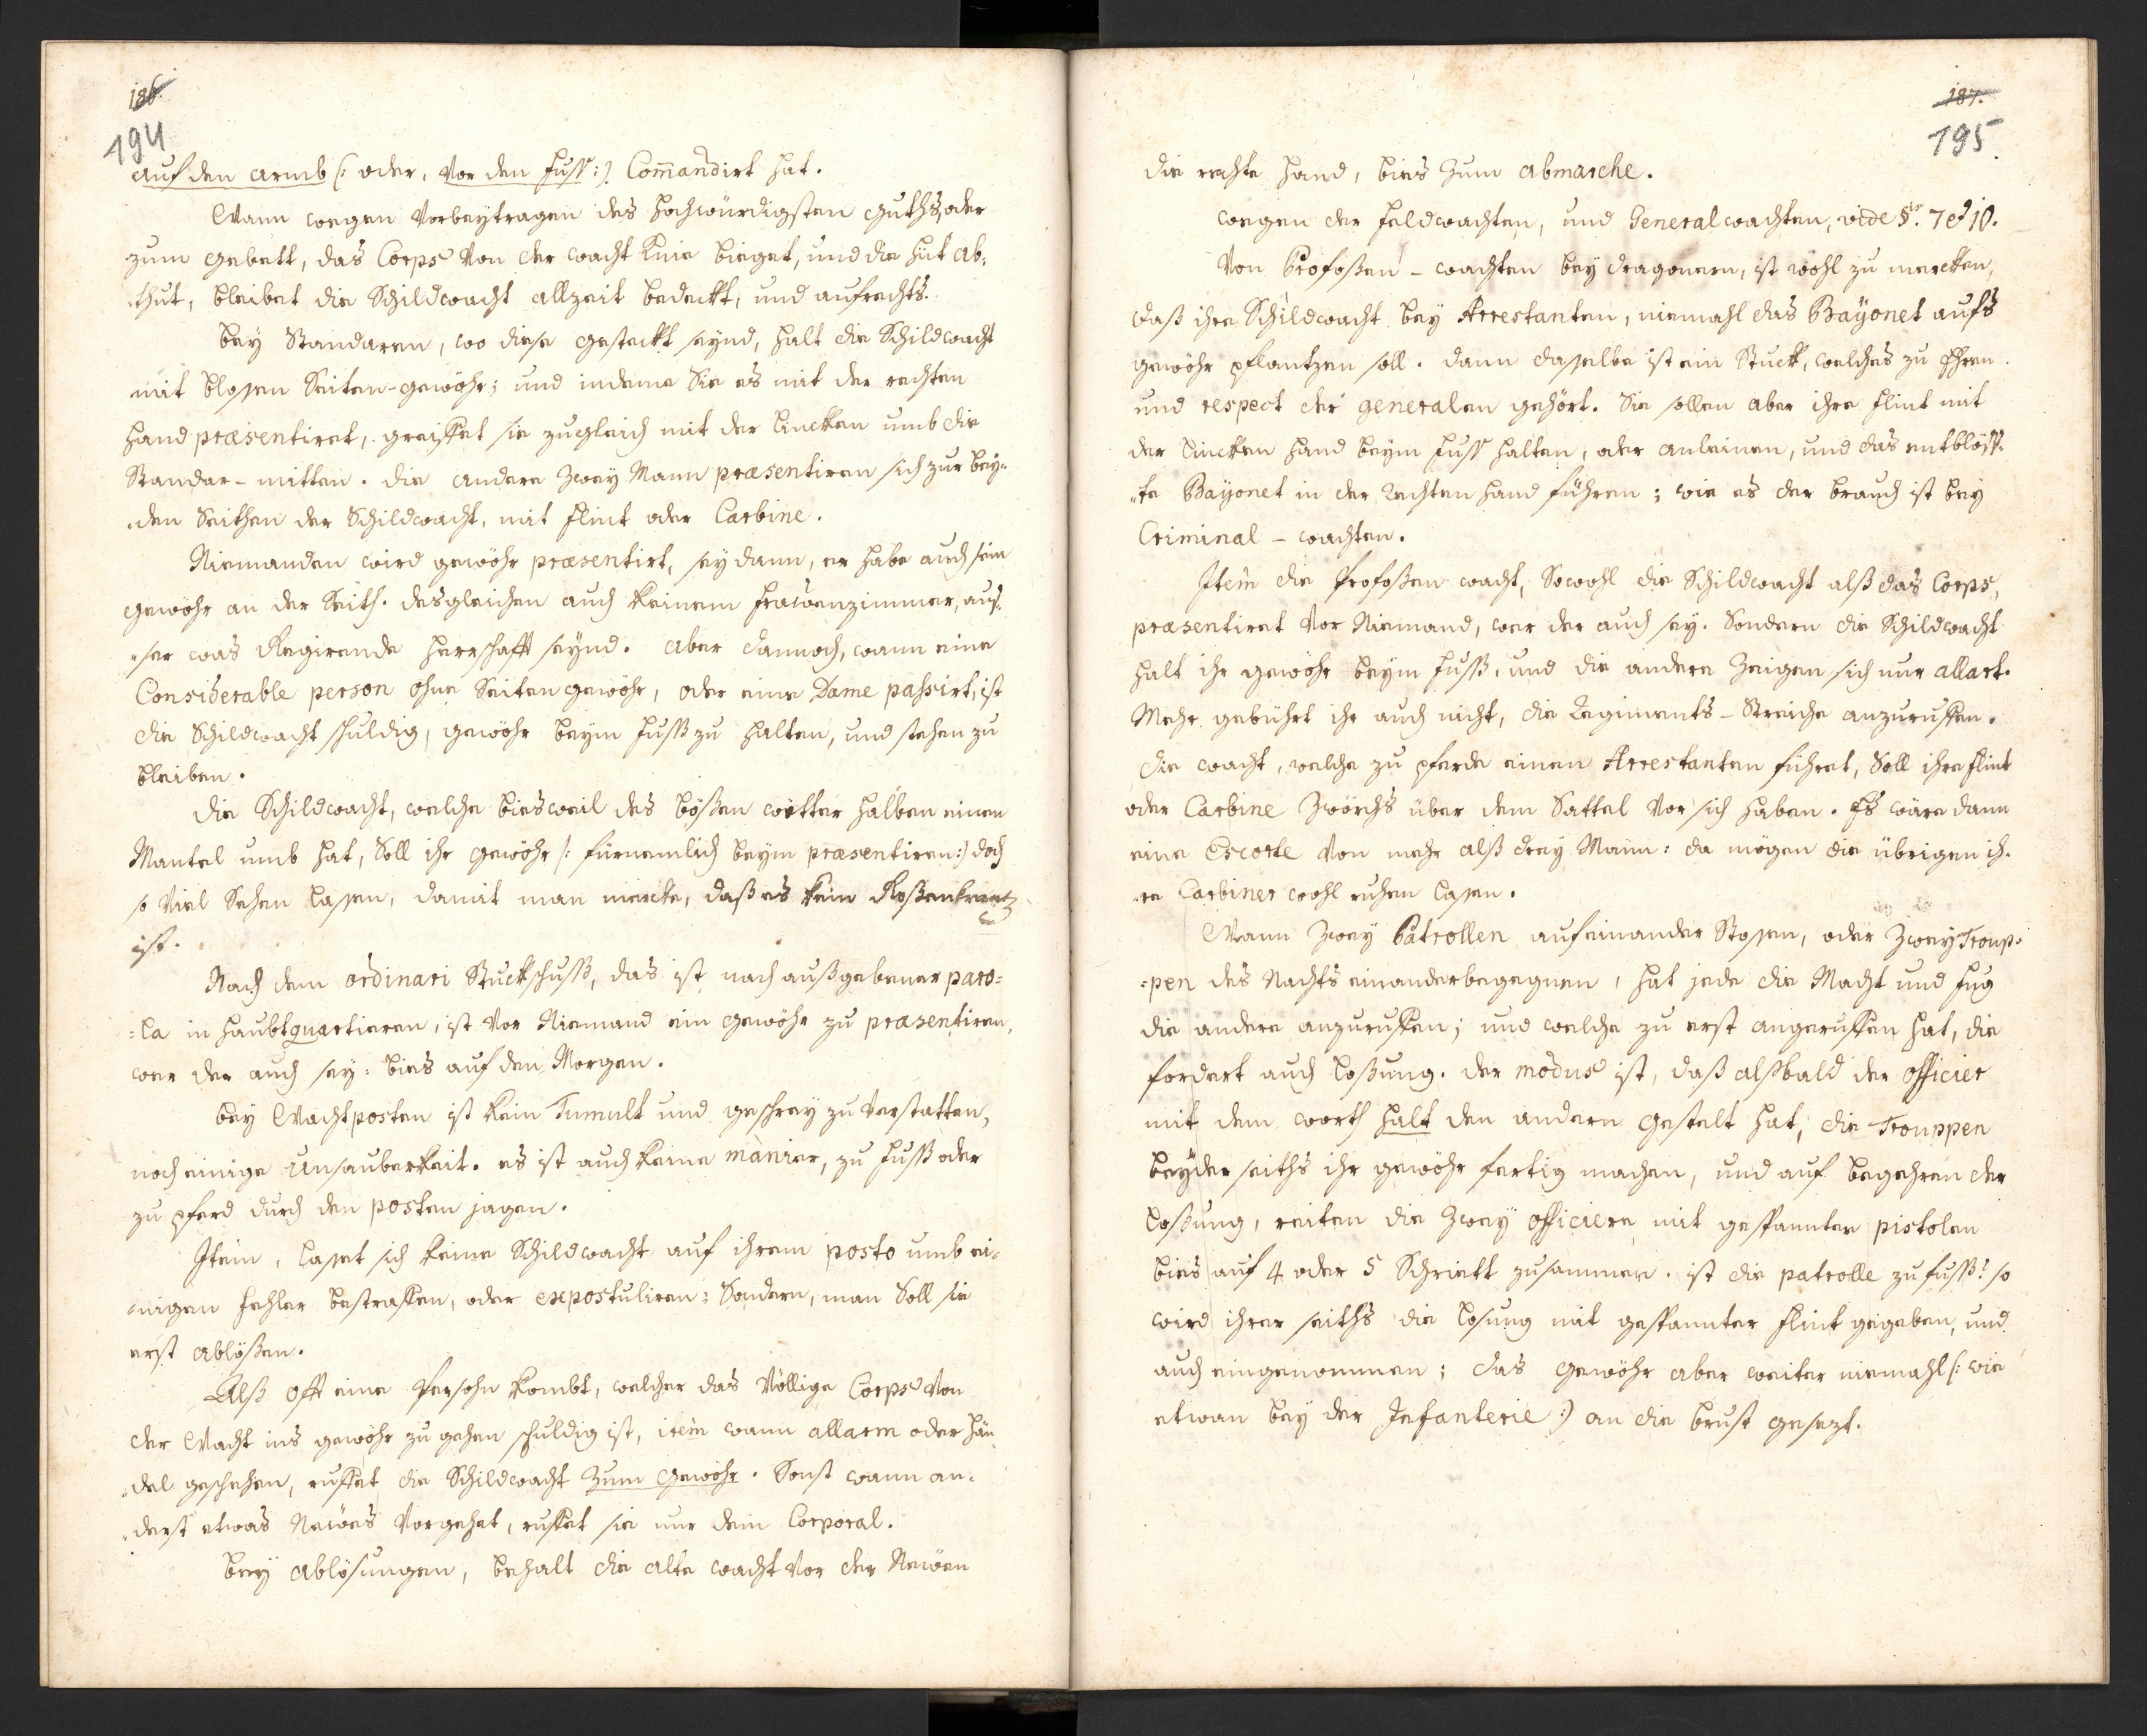 186.
194
auf den armb /: oder, Vor den fuss :/ Com̄andirt hat.
Wann wegen Vorbeytragen des hochwürdigsten guths, oder
zum gebett, das Corps Von der wacht Knie bieget, und die hüt ab¬
¬thut, bleibet die Schildwacht allzeit bedeckt, und aufrechts.
bey Standaren, wo diese gesteckt seynd, halt die Schildwacht
mit blossen Seiten-gewöhr; und indeme Sie es mit der rechten
hand præsentiret, greiffet sie zugleich mit der lincken umb die
Standar-mitten. die andere zwey Mann præsentiren sich zur bey¬
¬den Seithen der Schildwacht, mit flint oder Carbine.
Niemanden wird gewöhr præsentirt, sey dann, er habe auch sein
gewöhr an der Seith. desgleichen auch keinem frawenzimmer, aus¬
¬ser was Regirende herrschafft seynd. aber dannoch, wann eine
Considerable person ohne Seiten gewöhr, oder eine Dame passirt, ist
die Schildwacht schuldig, gewöhr beym fuss zu halten, und stehen zu
bleiben.
die Schildwacht, welche biesweil des bößen wetter halben einen
Mantel umb hat, Soll ihr gewöhr /: fürnemlich beym præsentiren :/ doch
so Viel Sehen lassen, damit man mercke, daß es kein Roßenkrantz
ist.
Nach dem ordinari Stuckschuß, das ist nach außgebener paro=
=la in haubtquartieren, ist Vor Niemand ein gewöhr zu præsentiren,
wer der auch sey: bies auf den Morgen.
bey Wachtposten ist kein Tumult und geschrey zu Verstatten,
noch einige Unsauberkeit. es ist auch keine manier, zu fuss oder
zu pferd durch den posten jagen.
Item, lasset sich keine Schildwacht auf ihrem posto umb ei¬
¬nigen fehler bestraffen, oder expostuliren: Sondern, man Soll sie
erst ablößen.
Alß offt eine Persohn kombt, welcher das Völlige Corps Von
der Wacht ins gewöhr zu gehen schuldig ist, item wann allarm oder hän¬
¬del geschehen, ruffet die Schildwacht zum gewöhr. Sonst wann an¬
¬derst etwas Newes Vorgehet, ruffet sie nur dem Corporal.
bey ablösungen, behalt die alte wacht Vor der Newen
187.
195
die rechte hand, bies zum abmarche.
wegen der feldwachten, und Generalwachten, vide §is. 7 et 10.
Von Profoßen-wachten bey dragonern, ist wohl zu mercken,
daß ihre Schildwacht bey Arrestanten, niemahl das Bayonet aufs
gewöhr pflantzen soll. dann dasselbe ist ein Stuck, welches zu Ehren
und respect der generalen gehört. Sie sollen aber ihre flint mit
der lincken hand beym fuss halten, oder anleinen, und das entblöss¬
¬te Bayonet in der Rechten hand führen; wie es der brauch ist bey
Criminal-wachten.
Item die Profoßen wacht, Sowohl die Schildwacht alß das Corps,
præsentiret Vor Niemand, wer der auch sey. Sondern die Schildwacht
halt ihr gewöhr beym fuss, und die andere Zeigen sich nur allart.
Mehr gebührt ihr auch nicht, die Regiments-Streiche anzuruffen.
die wacht, welche zu pferde einen Arrestanten führet, Soll ihre flint
oder Carbine Zwörchs über dem Sattel Vor sich haben. Es wäre dann
eine Escorte Von mehr alß drey Mann: da mögen die übrigen ih¬
¬re Carbiner wohl ruhen lassen.
Wann Zwey Patrollen aufeinander Stossen, oder Zwey Troup¬
=pen des Nachts einander begegnen, hat jede die Macht und fug
die andere anzuruffen; und welche zu erst angeruffen hat, die
fordert auch loßung. der modus ist, daß alßbald der officier
mit dem worth halt den andern gestelt hat, die Trouppen
beyderseiths ihr gewöhr fertig machen, und auf begehren der
loßung, reiten die Zwey officiere mit gespannten pistolen
bies auf 4 oder 5 Schriett zusammen. ist die patrolle zu fuss? so
wird ihrer seiths die losung mit gespannter flint gegeben, und
auch eingenommen; das gewöhr aber weiter niemahl /: wie
etwan bey der Infanterie :/ an die brust gesezt.